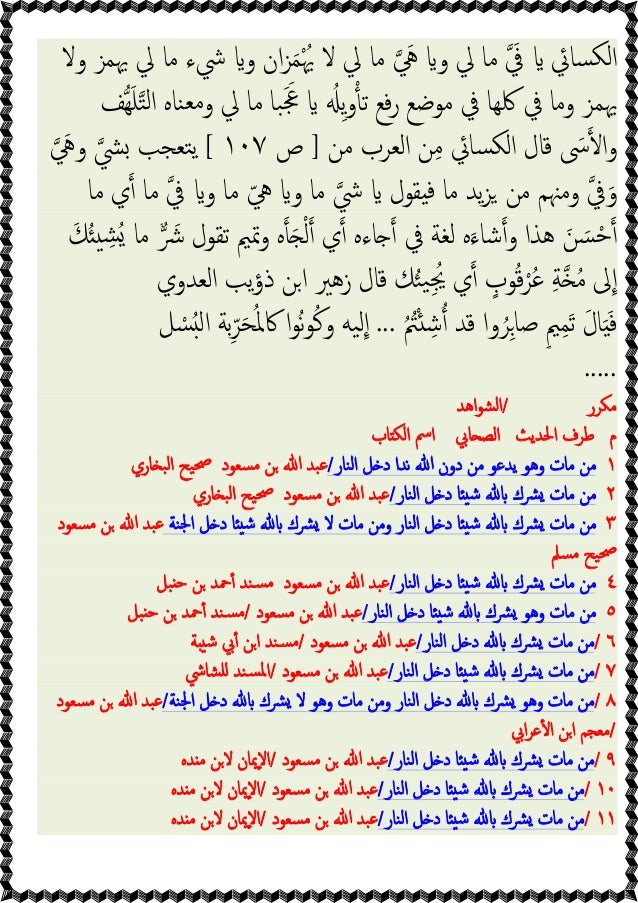 الكسائي يا فَيَّ ما لي ويا هَيَّ ما لي لا يُهْمَزان ويا شيء ما لي يهمز ولا
يهمز وما في كلها في موضع رفع تأْوِيلُه يا عَجَبا ما لي ومعناه التَّلَهُّف
والأَسَى قال الكسائي مِن العرب من [ ص ١٠٧ ] يتعجب بشيَّ وهَيَّ
وَفيَّ ومنهم من يزيد ما فيقول يا شيَّ ما ويا هيّ ما ويا فيَّ ما أَي ما
أَحْسَنَ هذا وأَشاءَه لغة في أَجاءه أَي أَلْجَأَه وتميم تقول شَرٌّ ما يُشِيئُكَ
إِلى مُخَّةِ عُرْقُوبٍ أَي يُجِيئُك قال زهير ابن ذؤيب العدوي
فَيَالَ تَمِيمٍ صابِرُوا قد أُشِئْتُمُ ... إِليه وكُونُوا كالمُحَرِّبة البُسْل
.....
مكرر /الشواهد
م طرف الحديث الصحابي اسم الكتاب
١ من مات وهو يدعو من دون الله ندا دخل النار/عبد الله بن مسعود صحيح البخاري
٢ من مات يشرك بالله شيئا دخل النار/عبد الله بن مسعود صحيح البخاري
٣ من مات يشرك بالله شيئا دخل النار ومن مات لا يشرك بالله شيئا دخل الجنة عبد الله بن مسعود
صحيح مسلم
٤ من مات يشرك بالله شيئا دخل النار/عبد الله بن مسعود مسند أحمد بن حنبل
٥ من مات وهو يشرك بالله شيئا دخل النار/عبد الله بن مسعود /مسند أحمد بن حنبل
٦ /من مات يشرك بالله دخل النار/عبد الله بن مسعود /مسند ابن أبي شيبة
٧ /من مات يشرك بالله شيئا دخل النار/عبد الله بن مسعود /المسند للشاشي
٨ /من مات وهو يشرك بالله دخل النار ومن مات وهو لا يشرك بالله دخل الجنة/عبد الله بن مسعود
/معجم ابن الأعرابي
٩ /من مات يشرك بالله شيئا دخل النار/عبد الله بن مسعود /الإيمان لابن منده
١٠ /من مات يشرك بالله شيئا دخل النار/عبد الله بن مسعود /الإيمان لابن منده
١١ /من مات يشرك بالله شيئا دخل النار/عبد الله بن مسعود /الإيمان لابن منده